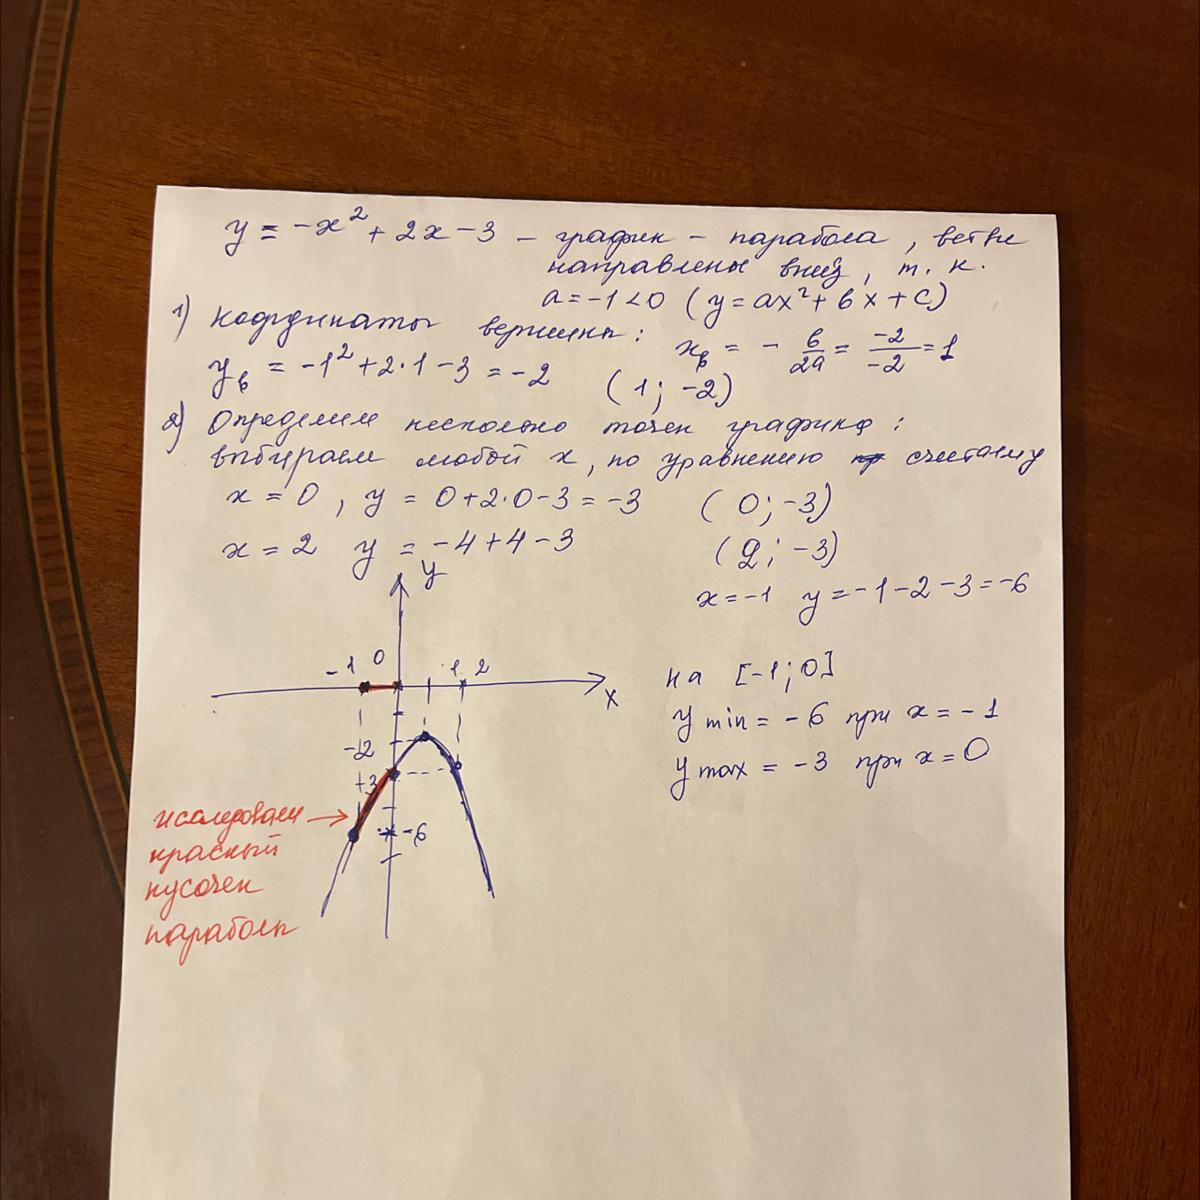 y = -x² + 2x - 3 - график - парабола, ветви
направлены вниз, т. к.
a = -1 < 0 (y = ax² + bx + c)
1) координаты вершины: xв = - b/2a = -2/-2 = 1
yв = -1² + 2·1 - 3 = -2 (1; -2)
2) Определим несколько точек графика:
выбираем любой x, по уравнению считаем y
x = 0, y = 0 + 2·0 - 3 = -3 (0; -3)
x = 2 y = -4 + 4 - 3 (2; -3)
x = -1 y = -1 - 2 - 3 = -6
y
-1 0 1 2
x
-2
+3
-6
на [-1; 0]
y min = -6 при x = -1
y max = -3 при x = 0
исследоваем
красный
кусочек
параболы